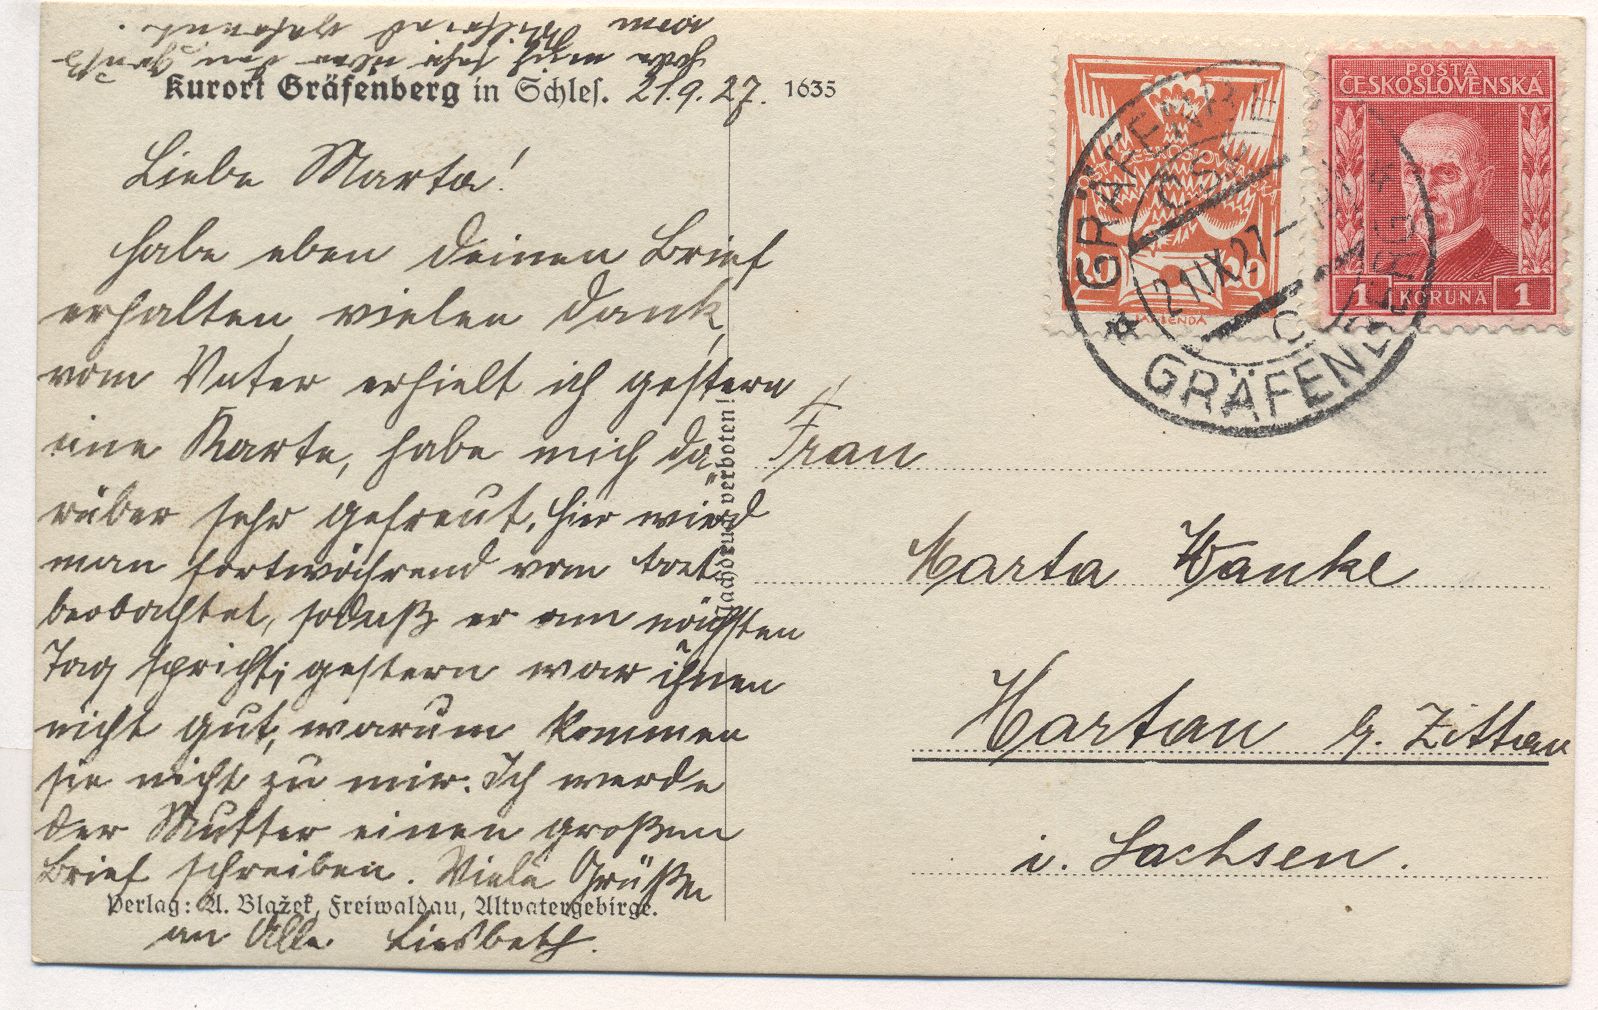 Kurort Gräfenberg in Schles. 21.9.27. 1635
Liebe Marta!
habe eben deinen Brief
erhalten, vielen Dank,
vom Vater erhielt ich gestern
eine Karte, habe mich da„
rüber sehr gefreut. Hier wird
man fortwährend vom
beobachtet, sodaß er am nächsten
Tag spricht; gestern war ihnen
nicht gut, warum kommen
sie nicht zu mir. Ich werde
der Mutter einen großen
Brief schreiben. Viele Grüße
Verlag: A. Blažek, Freiwaldau, Altvatergebirge.
an Alle. Liesbeth.
habe mich sehr über den Gruß
von gefreut.
Nachdruck verboten!
POŠTA
ČESKOSLOVENSKÁ
1 KORUNA 1
20 20
GRÄFENBERG
21.IX.27
C
GRÄFENBERG
Frau
Marta Wanke
Hartau b. Zittau
i. Sachsen.